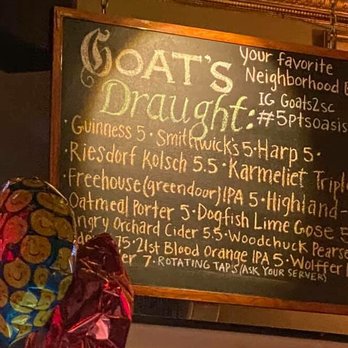 GOAT'S
Draught:
Your favorite
Neighborhood
IG Goats2sc
#5ptsoasis
· Guinness 5 · Smithwicks 5 · Harp 5 ·
Riesdorf Kolsch 5.5 · Karmeliet Triple
Freehouse (greendoor) IPA 5 · Highland -
Oatmeal Porter 5 · Dogfish Lime Gose 5
Angry Orchard Cider 5.5 · Woodchuck Pearse
75 · 21st Blood Orange IPA 5 · Wolffer
7 · ROTATING TAPS (ASK YOUR SERVER)